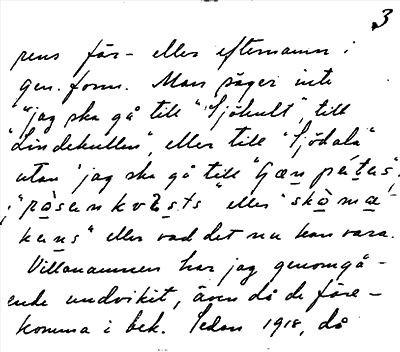 3
rens för- eller efternamn i
gen. form. Man säger inte
"jag ska gå till "Sjöhult", till
"Lindekullen", eller till "Sjödala"
utan "jag ska gå till "Gæn pétəs",
"ròsənkvists" eller "skòmə-
kəns" eller vad det nu kan vara.
Villanamnen har jag genomgå-
ende undvikit, även då de före-
komma i bek. Sedan 1918, då